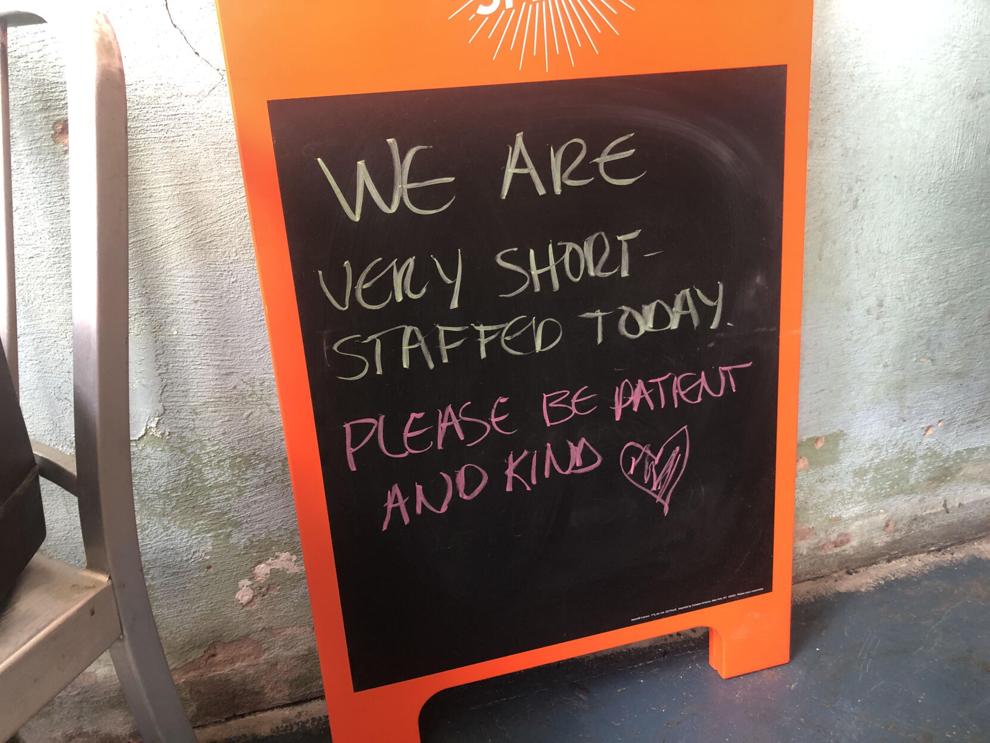 WE ARE
VERY SHORT-
STAFFED TODAY.
PLEASE BE PATIENT
AND KIND